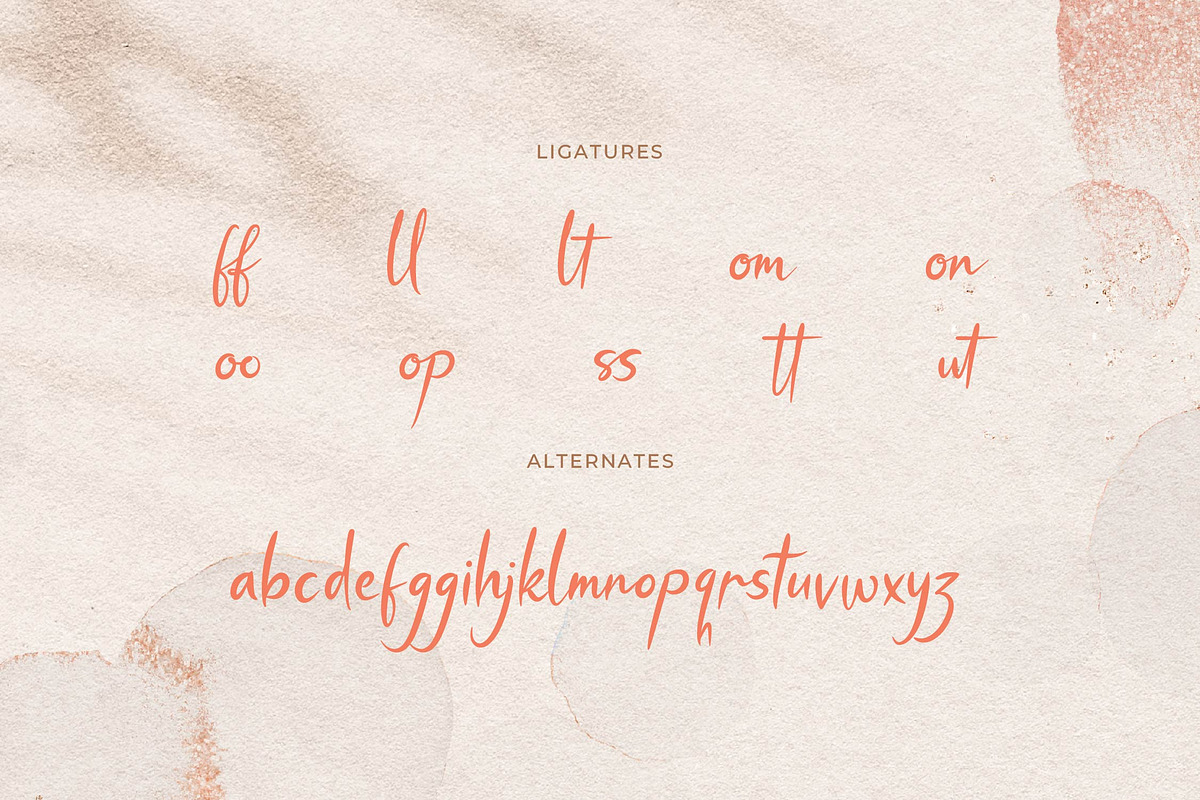 LIGATURES
ff ll lt om on
oo op ss tt ut
ALTERNATES
abcdefggihjklmnopqrstuvwxyz